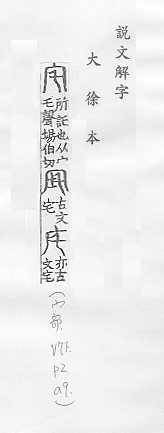 説文解字
大徐本
宅 所託也从宀
乇聲場伯切
古文
宅
亦古
文宅
(宀部 V7下. p2 a9.)